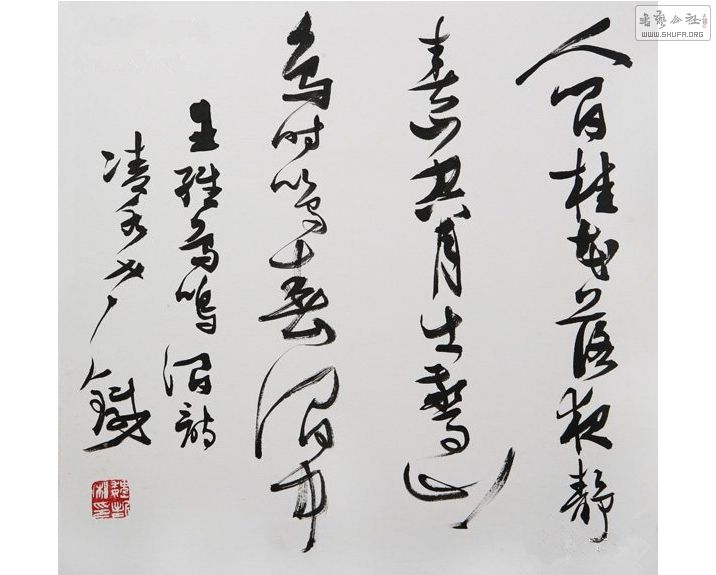 人閒桂花落夜靜
春山空月出驚山
鳥時鳴春澗中
王維鳥鳴澗詩
書藝公社
WWW.SHUFA.ORG